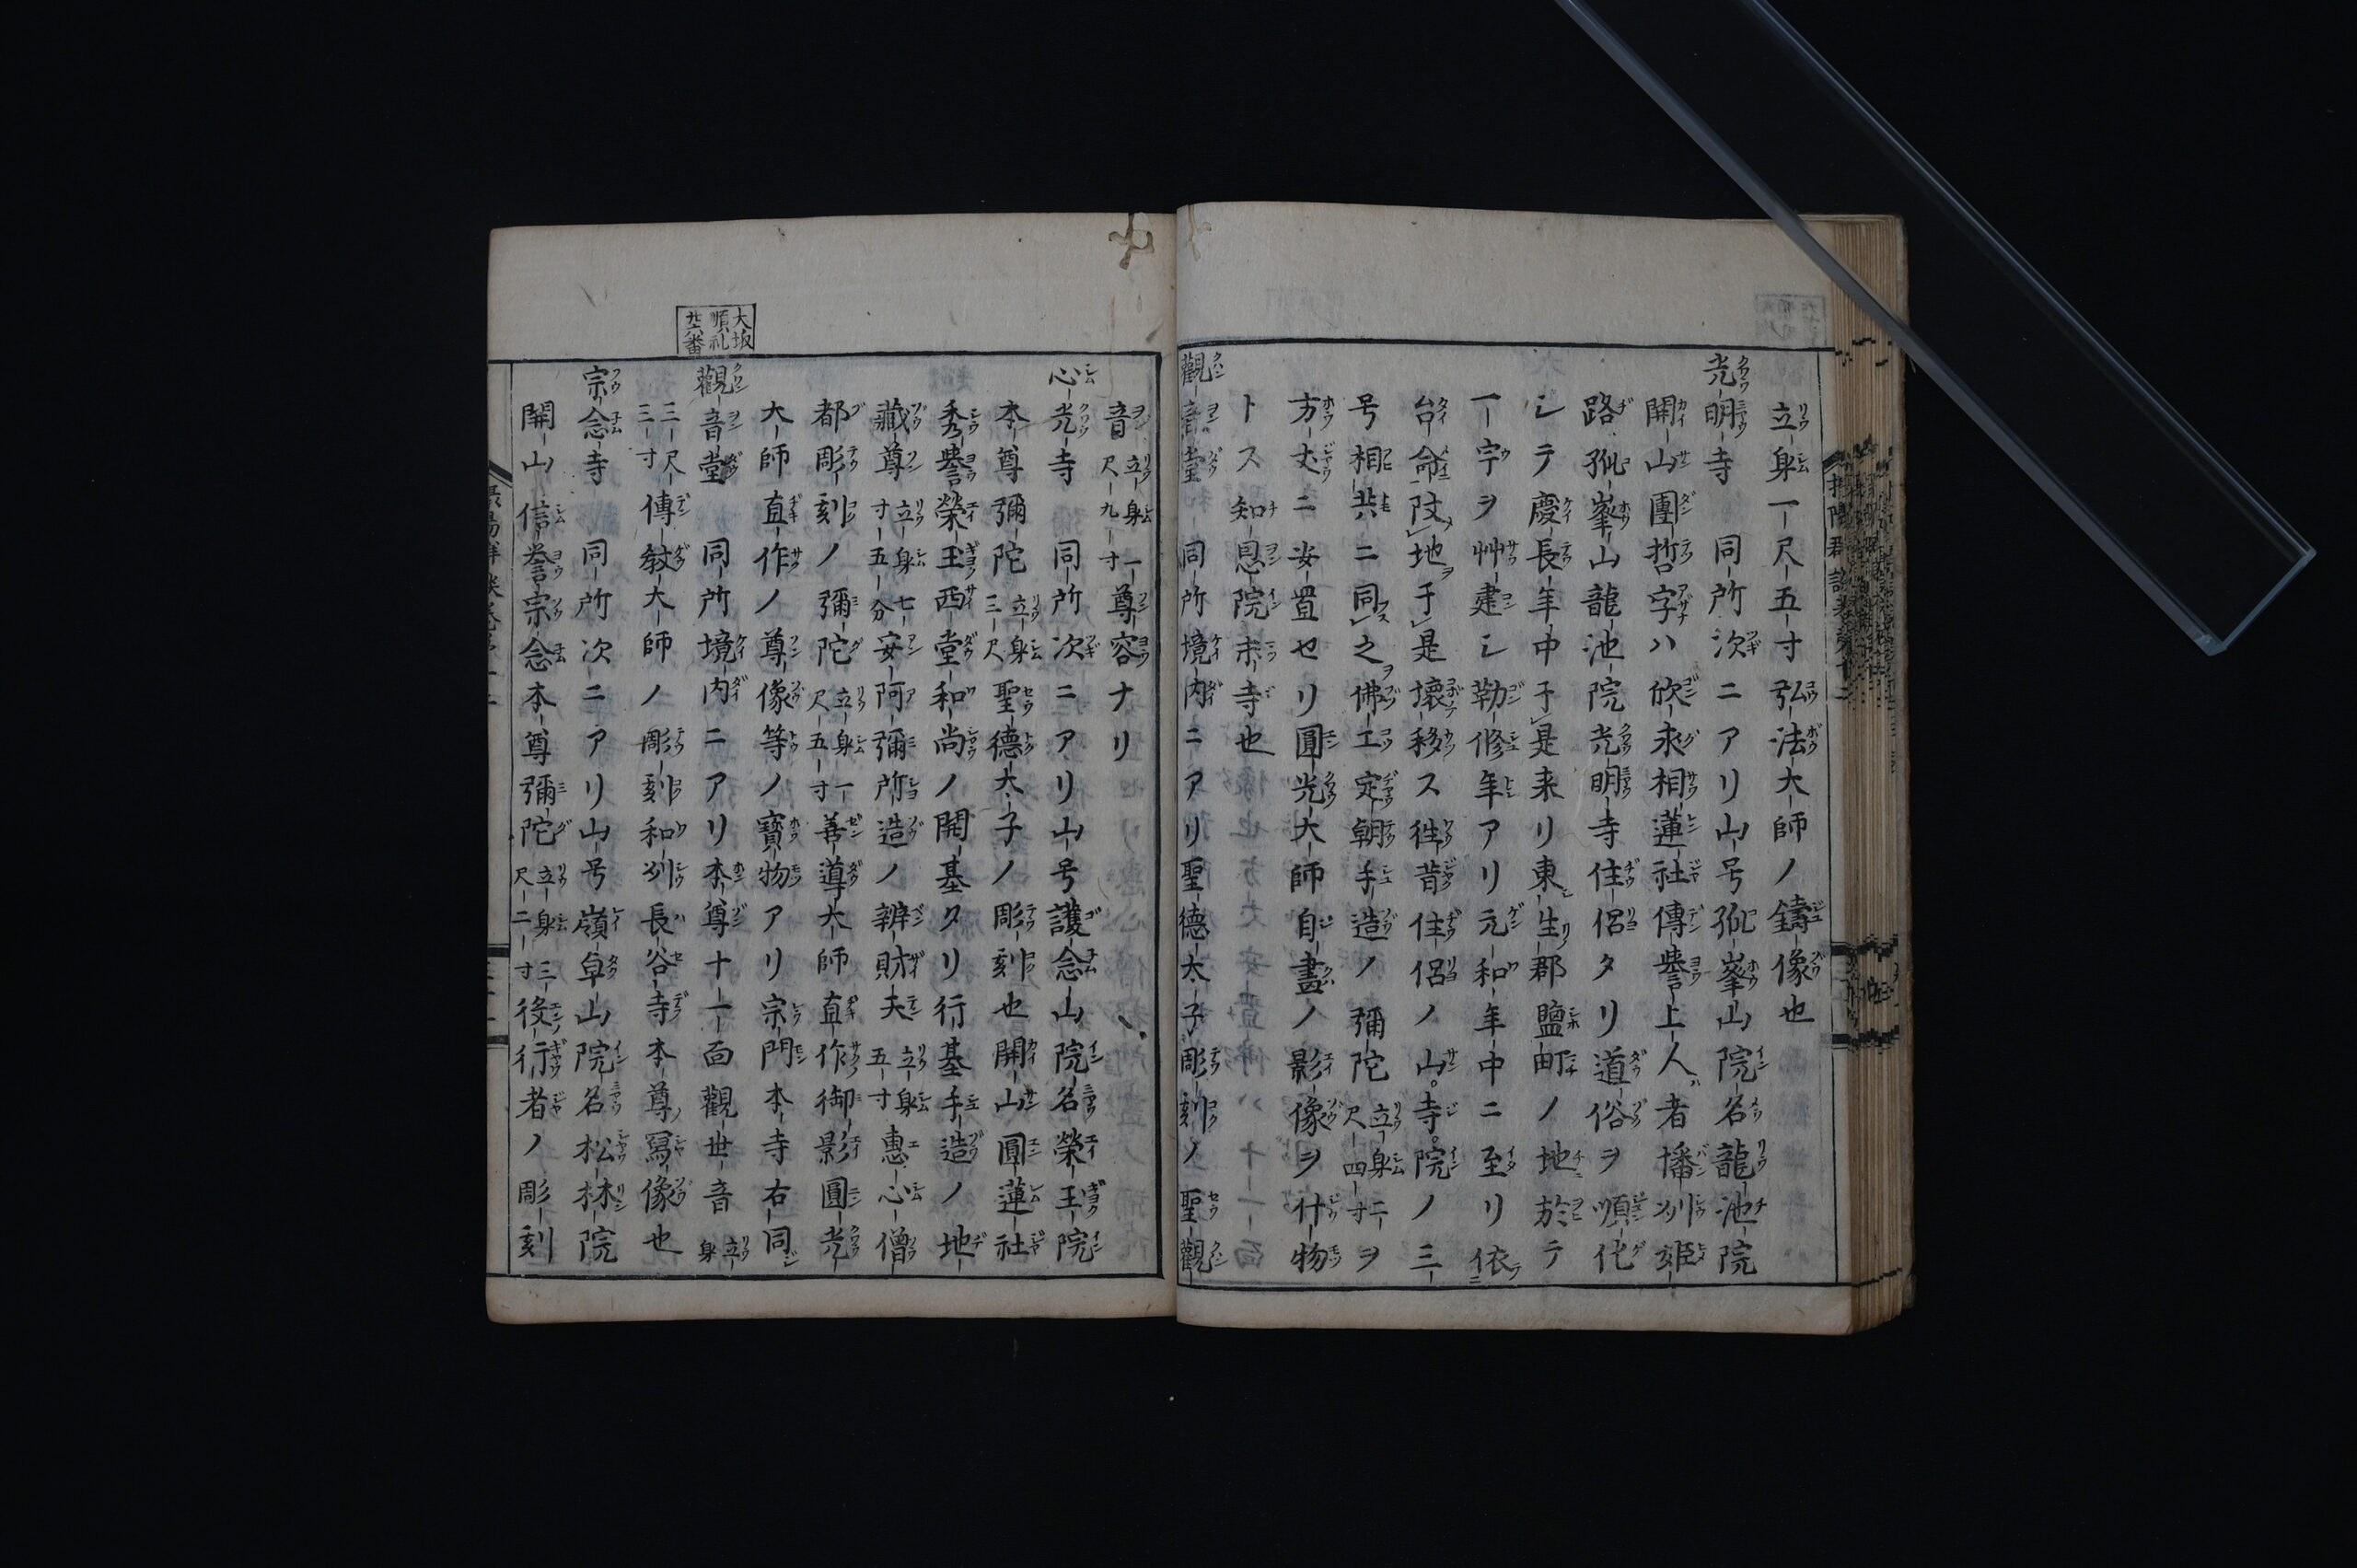 立身一尺五寸弘法大師ノ鑄像也
光明寺 同所次ニアリ山号孤峯山院名龍池院
開山團哲字ハ欣求相蓮社傳譽上人者播州姫
路孤峯山龍池院光明寺住侶タリ道俗ヲ順化
シテ慶長年中于是来リ東生郡鹽町ノ地於テ
一宇ヲ艸建シ勤修年アリ元和年中ニ至リ依
台命陂地于是壊移ス徃昔住侶ノ山寺院ノ三
号相共ニ同之佛工定朝手造ノ彌陀立身二尺四寸ヲ
方丈ニ安置セリ圓光大師自畫ノ影像ヲ什物
トス知恩院末寺也
觀音堂 同所境内ニアリ聖德太子彫刻ノ聖觀
音立身一尺九寸尊容ナリ
心光寺 同所次ニアリ山号護念山院名榮玉院
本尊彌陀立身三尺聖德大子ノ彫刻也開山圓蓮社
秀譽榮玉西堂和尚ノ開基タリ行基手造ノ地
藏尊立身七寸五分安阿彌所造ノ辨財天立身五寸惠心僧
都彫刻ノ彌陀立身一尺五寸善導大師直作御影圓光
大師直作ノ尊像等ノ寶物アリ宗門本寺右同
大坂順礼廿六番
觀音堂 同所境内ニアリ本尊十一面觀世音立身
三尺三寸傳教大師ノ彫刻和州長谷寺本尊ノ寫像也
宗念寺 同所次ニアリ山号嶺卓山院名松林院
開山信誉宗念本尊彌陀立身三尺二寸役行者ノ彫刻